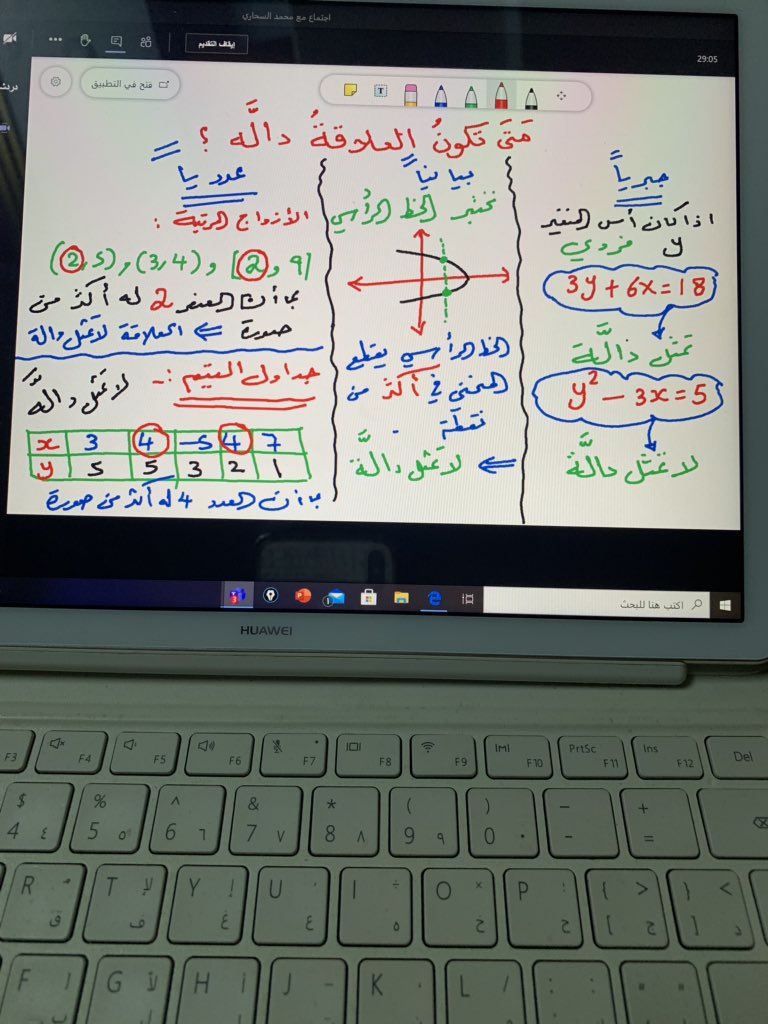 اجتماع مع محمد السحاري
إيقاف التقديم
29:05
فتح في التطبيق
مَتَى تَكونُ العلاقةُ دالَّه ؟
جبرياً
اذا كان أس المتغير
y فردي
3y + 6x = 18
تمثل دالَّة
y² - 3x = 5
لا تمثل دالَّة
بيانياً
نختبر الخط الرأسي
الخط الرأسي يقطع
المنحنى في أكثر من
نقطة .
⇐ لا تمثل دالَّة
عددياً
الأزواج المرتبة :
(2,5) , (3,4) , [2, 9]
بما أن العنصر 2 له أكثر من
صورة ⇐ العلاقة لا تمثل دالة
جداول القيم :-
لا تمثل دالَّة
x 3 4 -5 4 7
y 5 5 3 2 1
بما أن العدد 4 له أكثر من صورة
اكتب هنا للبحث
HUAWEI
F3 F4 F5 F6 F7 F8 F9 F10 PrtSc F11 Ins F12 Del
$ % ^ & * ( ) − +
4 ٤ 5 ٥ 6 ٦ 7 ٧ 8 ٨ 9 ٩ 0 ٠ - =
R ق T ف Y غ U ع I ه O خ P ح { [ ج } ] د
F G H J K L